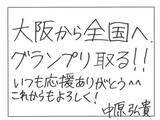 大阪から全国へ
グランプリ取る!!
いつも応援ありがとう^^
これからもよろしく!
中原弘貴